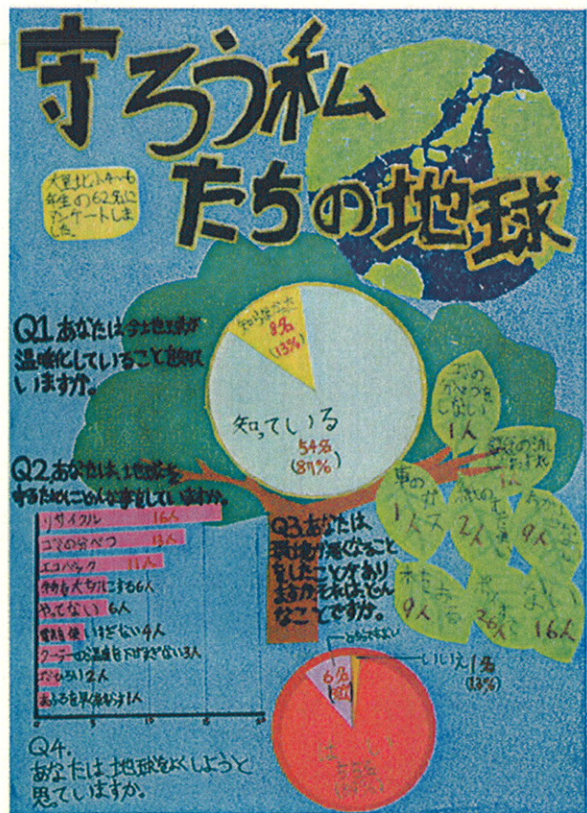 守ろう私
たちの地球
大里北小4〜6
年生の62名に
アンケートしま
した。
Q1.あなたは今地球が
温暖化していることを知って
いますか。
知らなかった
8名
(13%)
知っている
54名
(87%)
Q2.あなたは、地球を
守るためにどんな事をしていますか。
リサイクル 16人
ゴミの分べつ 13人
エコバック 11人
物を大切にする6人
やってない 6人
電気を使いすぎない4人
クーラーの温度を下げすぎない3人
ゴミひろい2人
おふろを早く出る1人
Q3.あなたは、
環境が悪くなること
をしたことがあり
ますか。それは、どん
なことですか。
しない
1人
車のガ
ス
1人
2人
9人
木をおる
9人
26人
ない
16人
どちらでもない
6名
いいえ1名
はい
55名
Q4.
あなたは地球をよくしようと
思っていますか。